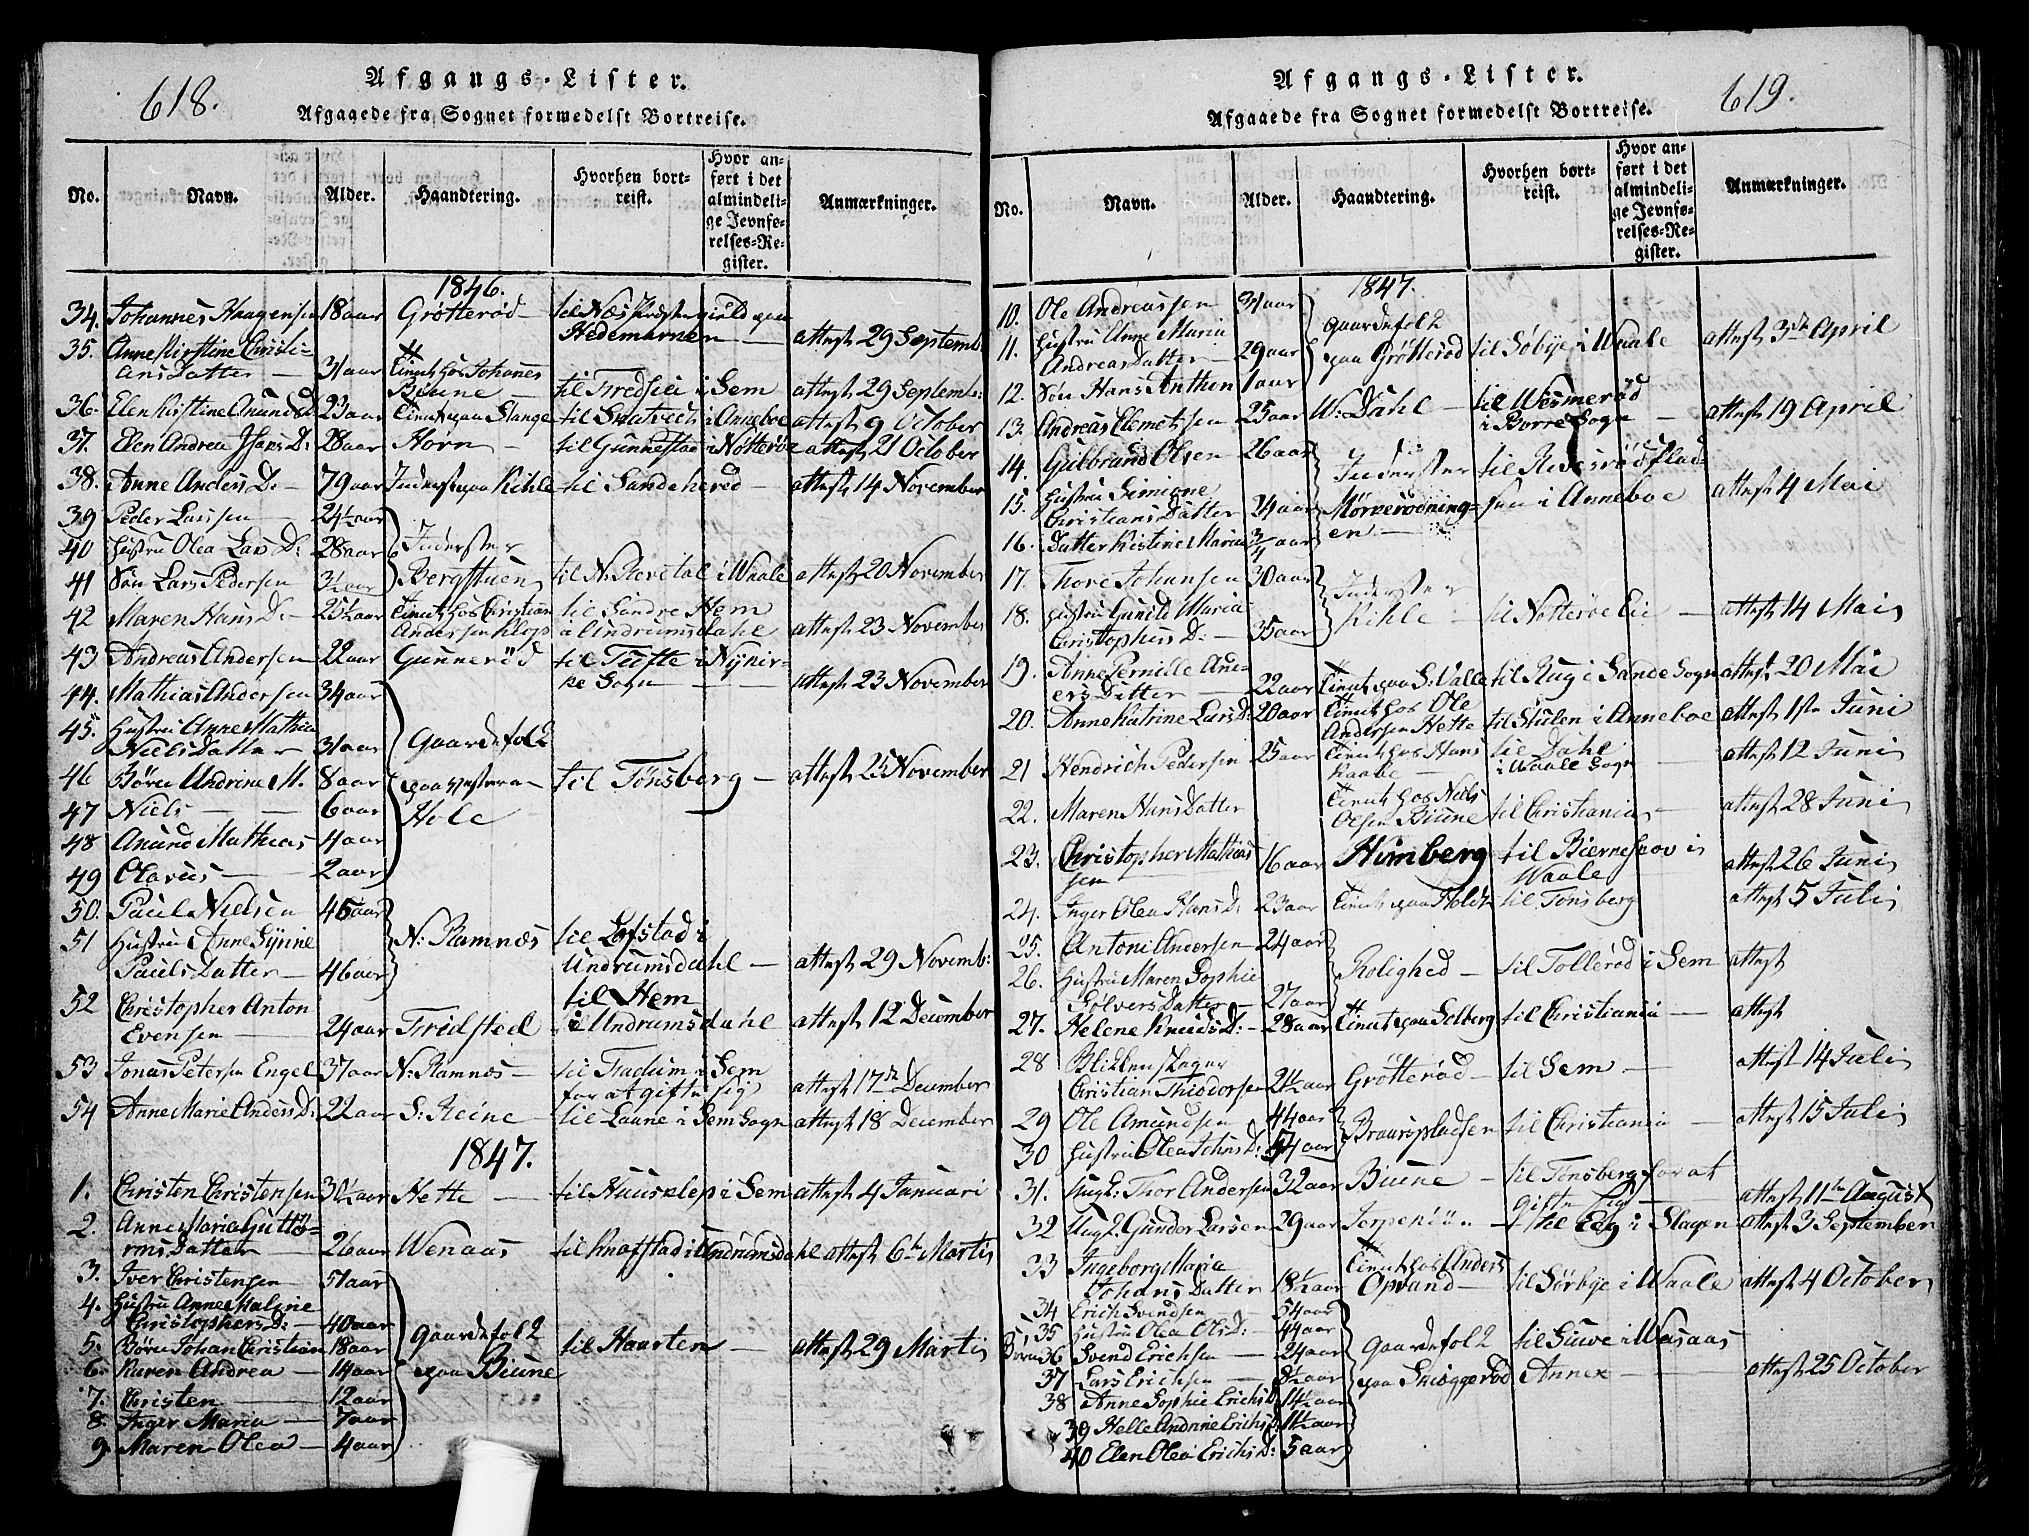 618.
Afgangs-Lister.
Afgaaede fra Sognet formedelst Bortreise.
No. Navn. Alder. Haandtering. Hvorhen bortreist. Hvor anført i det almindelige Jevnførelses-Register. Anmærkninger.
1846.
34. Johannes Haagensen 18 aar Grötteröd til Næs Præstegield paa
Hedemarken attest 29 Septemb:
35. Anne Kirstine Christi-
ans Datter 31 aar Johannes
Biune til Tredsia i Sem attest 29 Septemb:
36. Elen Kirstine Anunds D. 23 aar paa Slange til i Anneboe attest 9 October
37. Elen Andrea Hans D: 28 aar Horn til Gunnestad i Nötteröe attest 21 October
38. Anne Anders D. 79 aar Inderst paa Kihle til Sandeherred attest 14 November
39 Peder Larssen 24½ aar
40 Hustru Olea Lars D: 28 aar Inderster
41 Sön Lars Pedersen 3½ aar Bergstuen til N. Revetal i Waale attest 20 November
42 Maren Hans D. 25½ aar hos Christian til Söndre Hem
Andersen Klop i Undrumsdahl attest 23 November
43 Andreas Andersen 22 aar Gunneröd til Tufte i Nykir-
ke Sogn attest 23 November
44. Mathias Andersen 34 aar
45. Hustru Anne Mathia
Niels Datter 31 aar Gaardefolk
46 Börn Andrine M. 8 aar paa Vestre til Tönsberg attest 25 November
47 Niels 6 aar Hole
48 Anund Mathias 4 aar
49 Olavus 2 aar
50. Paul Nielsen 45 aar
51 Hustru Anne Synne N: Ramnæs til Lofstad i
Pauls Datter 46 aar Undrumsdahl attest 29 Novemb:
52 Christopher Anton til Hem
Evensen 24 aar Fridsted i Undrumsdahl attest 12 December
53 Jonas Petersen Engel 37 aar N: Ramnæs til Fradum i Sem
for at gifte sig attest 17de December
54 Anne Marie Anders D: 22 aar S: Reine til Laune i Sem Sogn attest 18 December
1847.
1. Christen Christensen 30½ aar Hette til Huusklep i Sem attest 4 Januari
2. Anne Maria Gutto-
rms Datter 26 aar Wenaas til Knafstad i Undrumsdahl attest 6te Martis
3. Iver Christensen 51 aar
4. Hustru Anne Maline
Christophers D: 40 aar
5. Börn Johan Christian 18 aar Gaardefolk til Haarten attest 29 Martis
6. Karen Andrea 14 aar paa Biune
7. Christen 12 aar
8. Inger Maria 7 aar
9. Maren Olea 4 aar
619.
Afgangs-Lister.
Afgaaede fra Sognet formedelst Bortreise.
No. Navn. Alder. Haandtering. Hvorhen bortreist. Hvor anført i det almindelige Jevnførelses-Register. Anmærkninger.
1847.
10. Ole Andreassen 31 aar
11. Hustru Anne Maria Gaardefolk
Andreas Datter 29 aar paa Grötteröd til Söbye i Waale attest 3de April
12. Sön Hans Anthon 1 aar
13. Andreas Clemetsen 25 aar W: Dahl til Wesmeröd
i Borre Sogn attest 19 April
14. Gulbrand Olsen 26 aar Inderster til Revesrödplad-
15. Hustru Simione
Christians Datter 24 aar Mörkerödning- sen i Anneboe attest 4 Mai
16. Datter Kistine Maria ¾ aar en
17. Thore Johansen 30 aar Inderster
18. Hustru Gunild Maria Kihle til Nötteröe Eie attest 14 Mai
Christophers D: 35 aar
19. Anne Pernille An-
ers Datter 22 aar paa S: Valle til Rug i Sande Sogn attest 20 Mai
20. Anne Katrine Lars D: 20 aar hos Ole
Andersen Hette til Stulen i Anneboe attest 1ste Juni
21 Hendrich Pedersen 25 aar hos Hans til Dahl
Raabe i Waale Sogn attest 12 Juni
22. Maren Hans Datter hos Niels
Olsen Biune til Christiania attest 28 Juni
23. Christopher Mathias
sen 16 aar Himberg til Bierneskov i
Waale attest 26 Juni
24. Inger Olea Hans D. 23 aar paa Holdt til Tönsberg attest 5 Juli
25. Antoni Andersen 24 aar
26. Hustru Maren Sophie Rolighed til Tolleröd i Sem attest
Sölvers Datter 27 aar
27. Helene Knuds D: 28 aar paa Solberg til Christiania attest
28 Blikkenslager
Christian Thiodorsen 24½ aar Grötteröd til Sem attest 14 Juli
29 Ole Amundsen 44 aar
30 Hustru Olea Johns D: 54 aar Braarspladsen til Christiania attest 15 Juli
31. Ungk: Thor Andersen 32 aar Biune til Tönsberg for at
gifte sig attest 11te August
32 Ungk. Gunder Larsen 29 aar Jerpekiön til Eeg i Slagen attest 3 September
33 Ingeborg Maria hos Anders
Johans Datter 18½ aar Opsand til Sörbye i Waale attest 4 October
34 Erich Svendsen 54 aar
35 Hustru Olea Ols D: 44 aar
Börn 36 Svend Erichsen 24 aar Gaardefolk til Siuve i Wasaas
37 Lars Erichsen 8½ aar paa Snöggeröd Annex attest 25 October
38 Anne Sophie Erichs D 14½ aar
39 Helle Andrine Erichs D. 11½ aar
40 Elen Olea Erichs D: 5 aar